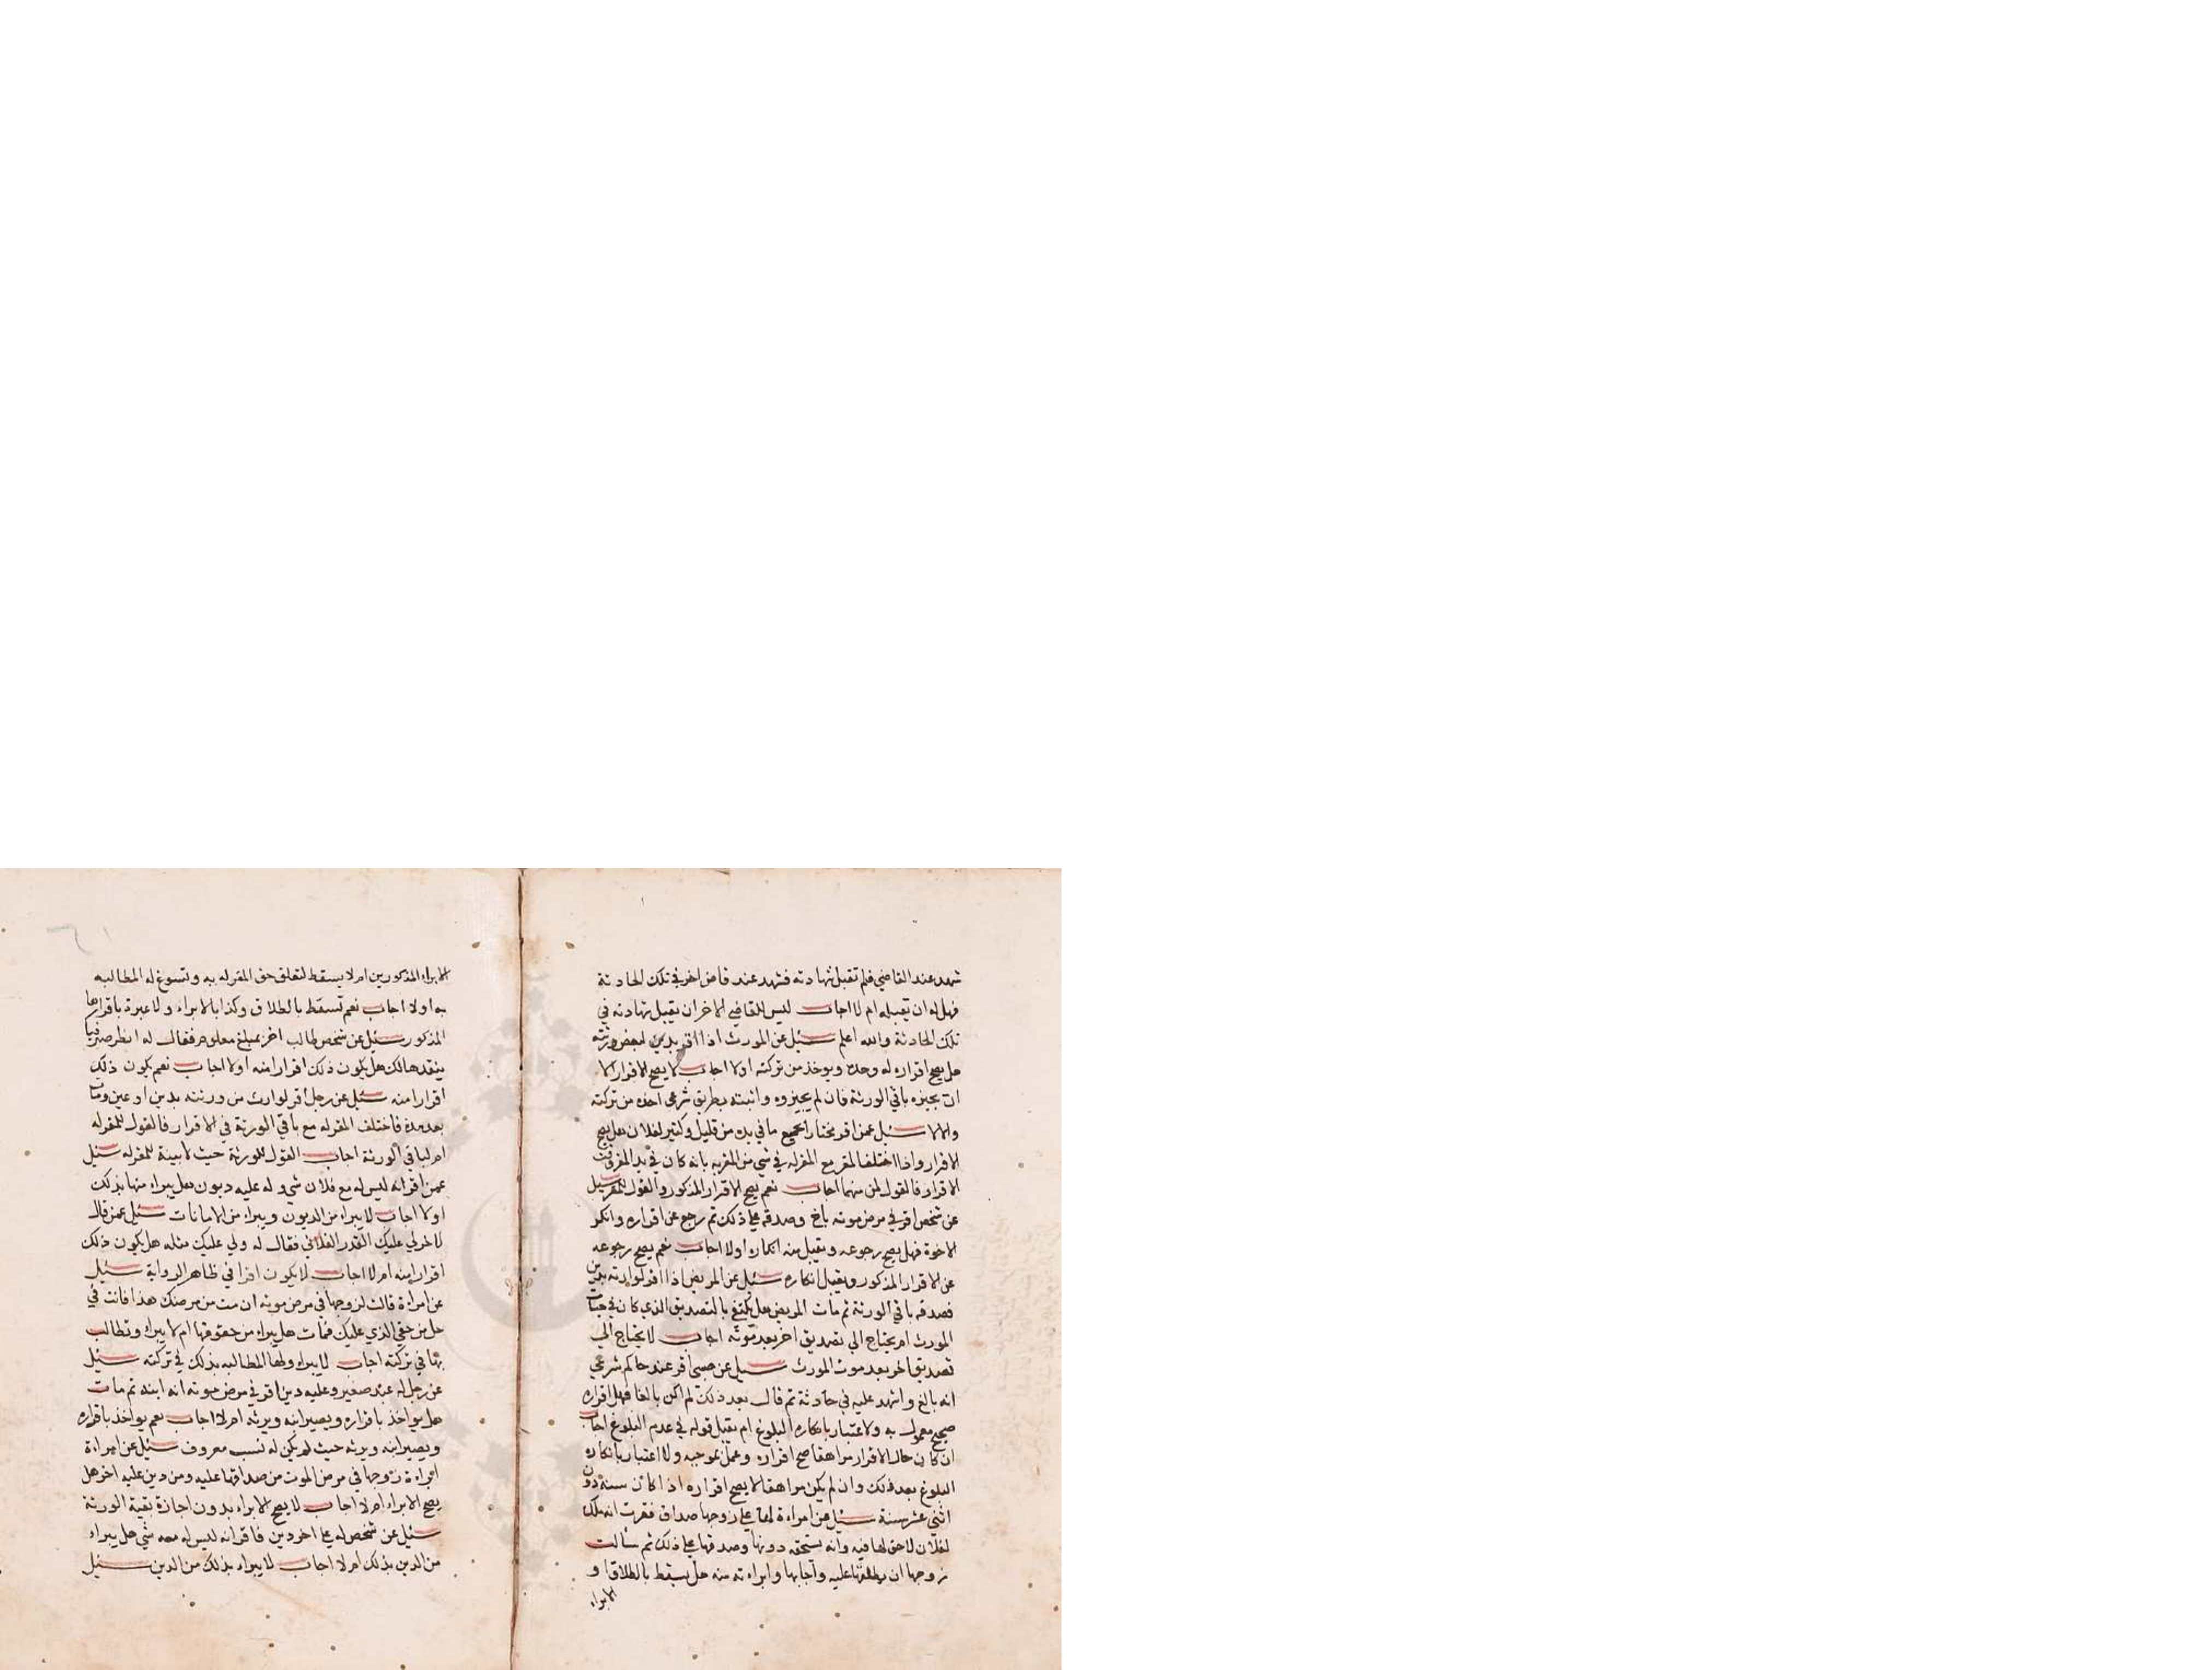 شهد عند القاضي فلم تقبل شهادته فشهد عند قاض اخر في تلك الحادثة
فهل له ان تقبله ام لا اجاب ليس للقاضي الاخر ان يقبل شهادته في
تلك الحادثة والله اعلم سئل عن المورث اذا اقر بدين لبعض ورثته
هل يصح اقراره له وحده ويوخذ من تركته اولا اجاب لا يصح الاقرار الا
ان يجيزه باقي الورثة فان لم يجيزوه واثبته بطريق شرعي اخذه من تركته
والا لا سئل عمن اقر مختارا بجميع ما في يده من قليل وكثير لفلان هل يصح
الاقرار واذا اختلف المقر مع المقر له في شي من المقر به بانه كان في يد المقر وقت
الاقرار فالقول لمن منهما اجاب نعم يصح الاقرار المذكور والقول للمقر سئل
عن شخص اقر في مرض موته باخ وصدقه على ذلك ثم رجع عن اقراره وانكر
الاخوة فهل يصح رجوعه ويقبل منه انكاره اولا اجاب نعم يصح رجوعه
عن الاقرار المذكور ويقبل انكاره سئل عن المريض اذا اقر لوارثه بدين
فصدقه باقي الورثة ثم مات المريض هل يكتفي بالتصديق الذي كان في حياة
المورث ام يحتاج الي تصديق اخر بعد موته اجاب لا يحتاج الي
تصديق اخر بعد موت المورث سئل عن صبي اقر عند حاكم شرعي
انه بالغ واشهد عليه في حادثة ثم قال بعد ذلك لم اكن بالغا فهل اقراره
صحيح معمول به ولا عتبار بانكاره البلوغ ام يقبل قوله في عدم البلوغ اجاب
ان كان حال الاقرار مراهقا صح اقراره وعمل بموجبه ولا اعتبار بانكاره
البلوغ بعد ذلك وان لم يكن مراهقا لا يصح اقراره اذا كان سنه دون
اثني عشر سنة سئل عن امراءة لها على زوجها صداق فقرت انه ملك
لفلان لا حق لها فيه وانه يستحقه دونها وصدقها على ذلك ثم سألت
زوجها ان يطلقها عليه واجابها وابراءته منه هل يسقط بالطلاق او
الابراء
الابراء المذكورين ام لا يسقط لتعلق حق المقر له به وتسوغ له المطالبه
به اولا اجاب نعم تسقط بالطلاق وكذا بالابراء ولا عبرة باقرارها
المذكور سئل عن شخص طالب اخر بمبلغ معلوم فقال له انظر صيرفيا
ينقدها لك هل يكون ذلك اقرارا منه اولا اجاب نعم يكون ذلك
اقرارا منه سئل عن رجل اقر لوارث من ورثته بدين او عين ومات
بعد مدة فاختلف المقر له مع باقي الورثة في الاقرار فالقول للمقر له
ام لباقي الورثة اجاب القول للورثة حيث لا بينة للمقر له سئل
عمن اقر انه ليس له مع فلان شي وله عليه ديون هل يبراء منها بذلك
اولا اجاب لا يبراء من الديون ويبراء من الامانات سئل عمن قال
لاخر لي عليك القدر الفلاني فقال له ولي عليك مثله هل يكون ذلك
اقرارا منه ام لا اجاب لا يكون اقرا في ظاهر الرواية سئل
عن امراءة قالت لزوجها في مرض موته ان مت من مرضك هذا فانت في
حل من حقي الذي عليك فمات هل يبراء من حقوقها ام لا يبراء وتطالب
بها في تركته اجاب لا يبراء ولها المطالبه بذلك في تركته سئل
عن رجل له عبد صغير وعليه دين اقر في مرض موته انه ابنه ثم مات
هل يواخذ باقراره ويصير ابنه ويرثه ام لا اجاب نعم يواخذ باقراره
ويصير ابنه ويرثه حيث لم يكن له نسب معروف سئل عن امراءة
ابراءة زوجها في مرض الموت من صداقها عليه ومن دين عليه اخر هل
يصح الابراء ام لا اجاب لا يصح الابراء بدون اجازة بقية الورثة
سئل عن شخص له على اخر دين فاقر انه ليس له معه شي هل يبراء
من الدين بذلك ام لا اجاب لا يبراء بذلك من الدين سئل